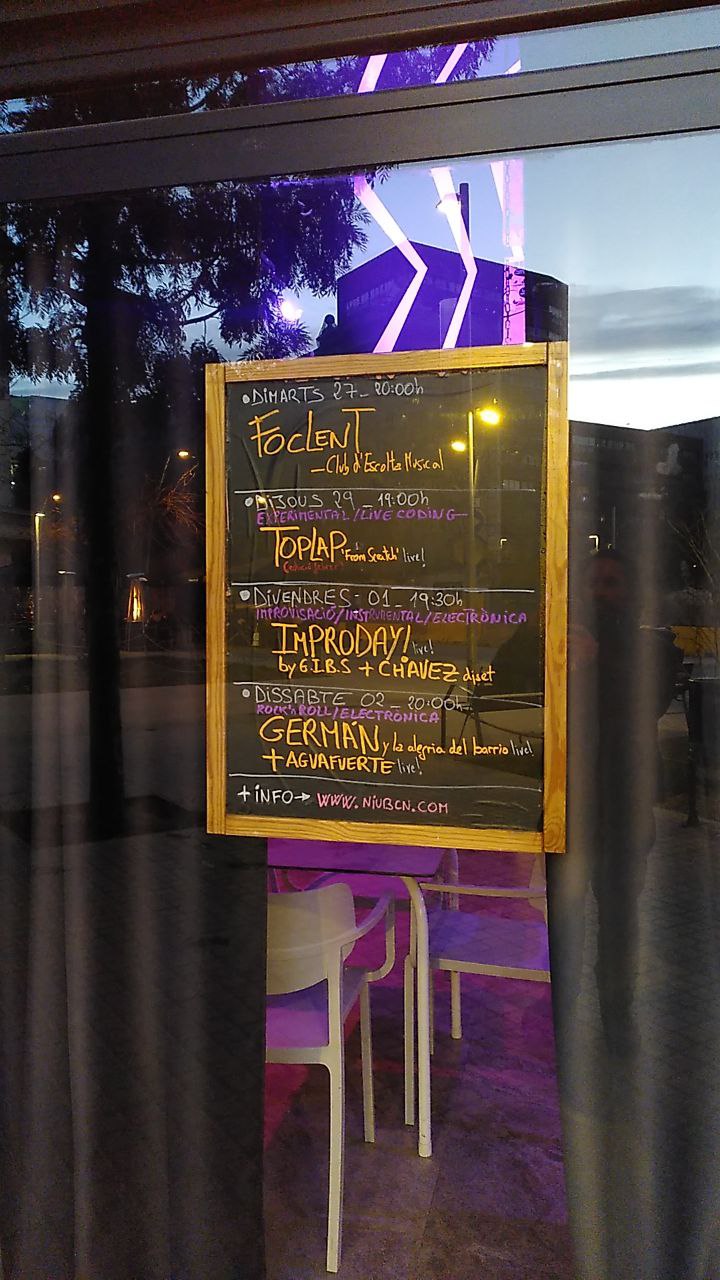 • DIMARTS 27_20:00h
FOCLENT
— Club d'Escolta Musical
• DIJOUS 29_19:00h
EXPERIMENTAL/LIVE CODING
TOPLAP "From Scratch" live!
• DIVENDRES - 01_19:30h
IMPROVISACIÓ/INSTRUMENTAL/ELECTRÒNICA
IMPRODAY! live!
by G.I.B.S + CHAVEZ djset
• DISSABTE 02_20:00h
ROCK'n ROLL/ELECTRÒNICA
GERMÁN y la alegria del barrio live!
+ AGUAFUERTE live!
+ iNFO → WWW.NIUBCN.COM